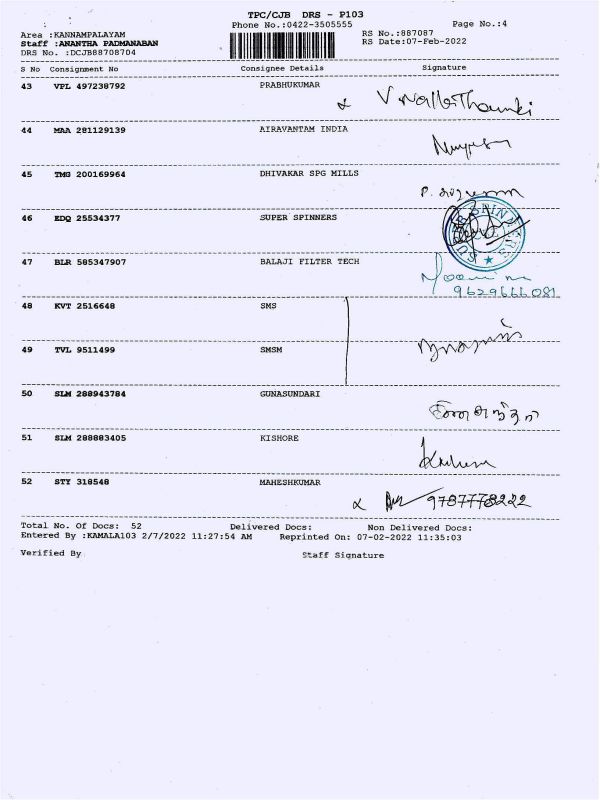 TPC/CJB DRS - P103
Phone No.:0422-3505555 Page No.:4
Area :KANNAMPALAYAM RS No.:887087
Staff :ANANTHA PADMANABAN RS Date:07-Feb-2022
DRS No. :DCJB88708704
S No Consignment No Consignee Details Signature
43 VPL 497238792 PRABHUKUMAR
44 MAA 281129139 AIRAVANTAM INDIA
45 TMG 200169964 DHIVAKAR SPG MILLS
46 EDQ 25534377 SUPER SPINNERS
47 BLR 585347907 BALAJI FILTER TECH
9629666081
48 KVT 2516648 SMS
49 TVL 9511499 SMSM
50 SLM 288943784 GUNASUNDARI
51 SLM 288883405 KISHORE
52 STY 318548 MAHESHKUMAR
9787778222
Total No. Of Docs: 52 Delivered Docs: Non Delivered Docs:
Entered By :KAMALA103 2/7/2022 11:27:54 AM Reprinted On: 07-02-2022 11:35:03
Verified By Staff Signature